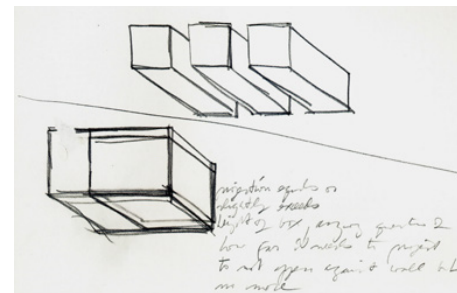 projection equals or
slightly exceeds
height of box, enquiry question 2
how far it needs to project
to not appear against wall but
no more